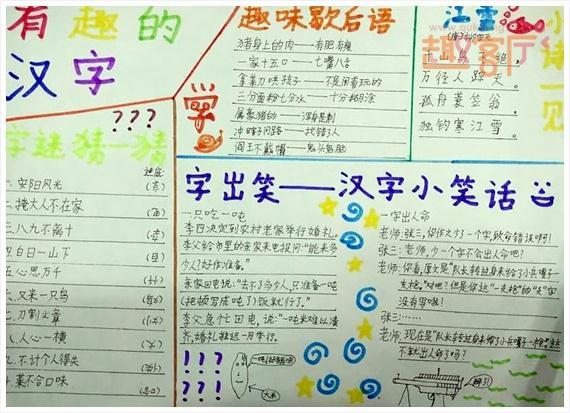 有趣的
汉字
趣味歇后语
猪身上的肉——有肥有瘦
一家十五口——七嘴八舌
拿菜刀哄孩子——不是闹着玩的
三分面粉七分水——十分糊涂
属豪猪的——浑身是刺
冲瞎子问路——找错了人
阎王不戴帽——鬼头鬼脑
学
江雪
千山鸟飞绝,
万径人踪灭。
孤舟蓑笠翁,
独钓寒江雪。
小诗一见
趣客厅
???
字谜猜一猜
谜底:
一、安阳风光
二、掩大人不在家
三、八九不离十
四、白日一山下
五、心思万千
六、又来一只鸟
七、刀割文章
八、人心一横
九、不讨个人得失
十、菜不合口味
字出笑——汉字小笑话
一只吃一吨
李四决定到农村老家举行婚礼,
李父给市里的亲家来电报问:“能来多
少人?好作准备。”
亲家回电说:“去不了多个人,只准备一吨
(把顿写成吨了)饭就行了。”
李父急忙回电,说:“一吨米难以凑
齐,婚礼推迟一月举行。
!!!
???
大米
一字出人命
老师:张三,你作文少了一个字,致命错误啊!
张三:老师,少一个字不会出人命吧?
老师:你看,原文是“队长转过身来给了小兵嘴子一
支枪。”对吧?但是你这“一支枪”的“支”字
没有写啦!
张三:……
老师:现在是“队长转过身来给了小兵嘴子一枪”
不就出人命了吗?